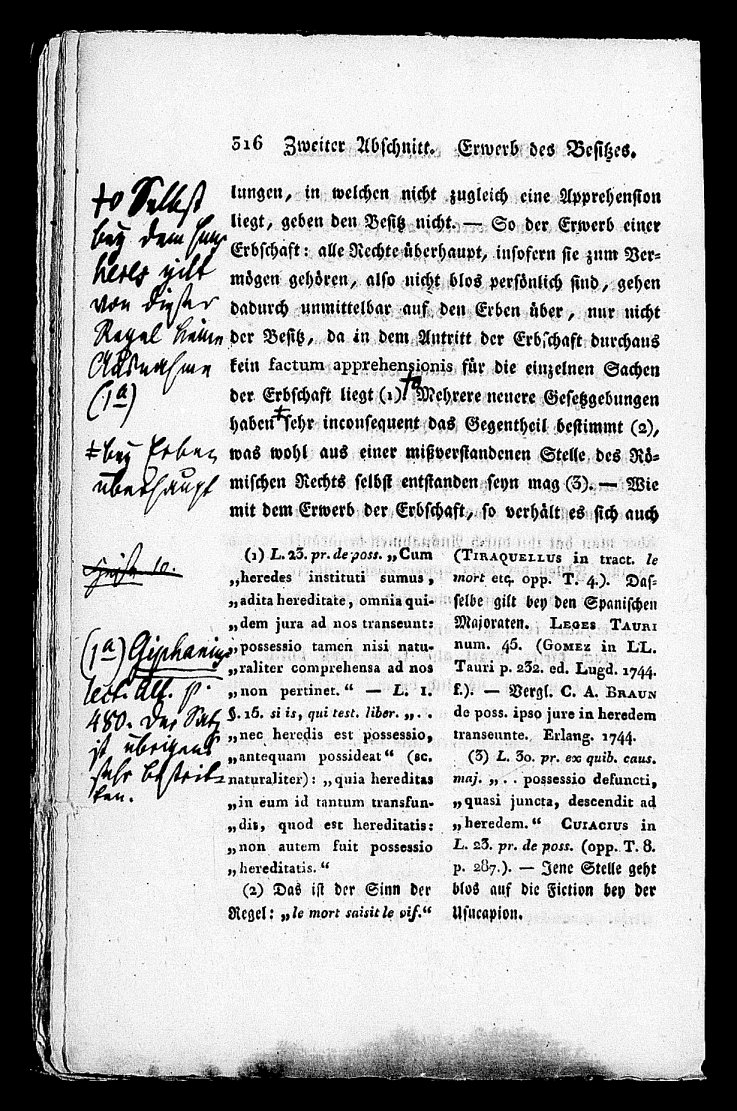 316 Zweiter Abschnitt. Erwerb des Besitzes.
lungen, in welchen nicht zugleich eine Apprehension
liegt, geben den Besitz nicht. — So der Erwerb einer
Erbschaft: alle Rechte überhaupt, insofern sie zum Ver-
mögen gehören, also nicht blos persönlich sind, gehen
dadurch unmittelbar auf den Erben über, nur nicht
der Besitz, da in dem Antritt der Erbschaft durchaus
kein factum apprehensionis für die einzelnen Sachen
der Erbschaft liegt (1). Mehrere neuere Gesetzgebungen
haben sehr inconsequent das Gegentheil bestimmt (2),
was wohl aus einer mißverstandenen Stelle des Rö-
mischen Rechts selbst entstanden seyn mag (3). — Wie
mit dem Erwerb der Erbschaft, so verhält es sich auch
(1) L. 23. pr. de poss. „Cum
„heredes instituti sumus,
„adita hereditate, omnia qui-
„dem jura ad nos transeunt:
„possessio tamen nisi natu-
„raliter comprehensa ad nos
„non pertinet.“ — L. 1.
§. 15. si is, qui test. liber. „. .
„nec heredis est possessio,
„antequam possideat“ (sc.
naturaliter): „quia hereditas
„in eum id tantum transfun-
„dit, quod est hereditatis:
„non autem fuit possessio
„hereditatis.“
(2) Das ist der Sinn der
Regel: „le mort saisit le vif.“
(TIRAQUELLUS in tract. le
mort etc. opp. T. 4.). Das-
selbe gilt bey den Spanischen
Majoraten. LEGES TAURI
num. 45. (GOMEZ in LL.
Tauri p. 232. ed. Lugd. 1744.
f.). — Vergl. C. A. BRAUN
de poss. ipso jure in heredem
transeunte. Erlang. 1744.
(3) L. 30. pr. ex quib. caus.
maj. „. . possessio defuncti,
„quasi juncta, descendit ad
„heredem.“ CUIACIUS in
L. 23. pr. de poss. (opp. T. 8.
p. 287.). — Jene Stelle geht
blos auf die Fiction bey der
Usucapion.
Selbst
bey dem suus
heres gilt
von dieser
Regel keine
Ausnahme
(1a)
‡ bey Erben
überhaupt
(1a) Giphanius
lect. Alt. p.
480. Der Satz
ist übrigens
sehr bestrit-
ten.